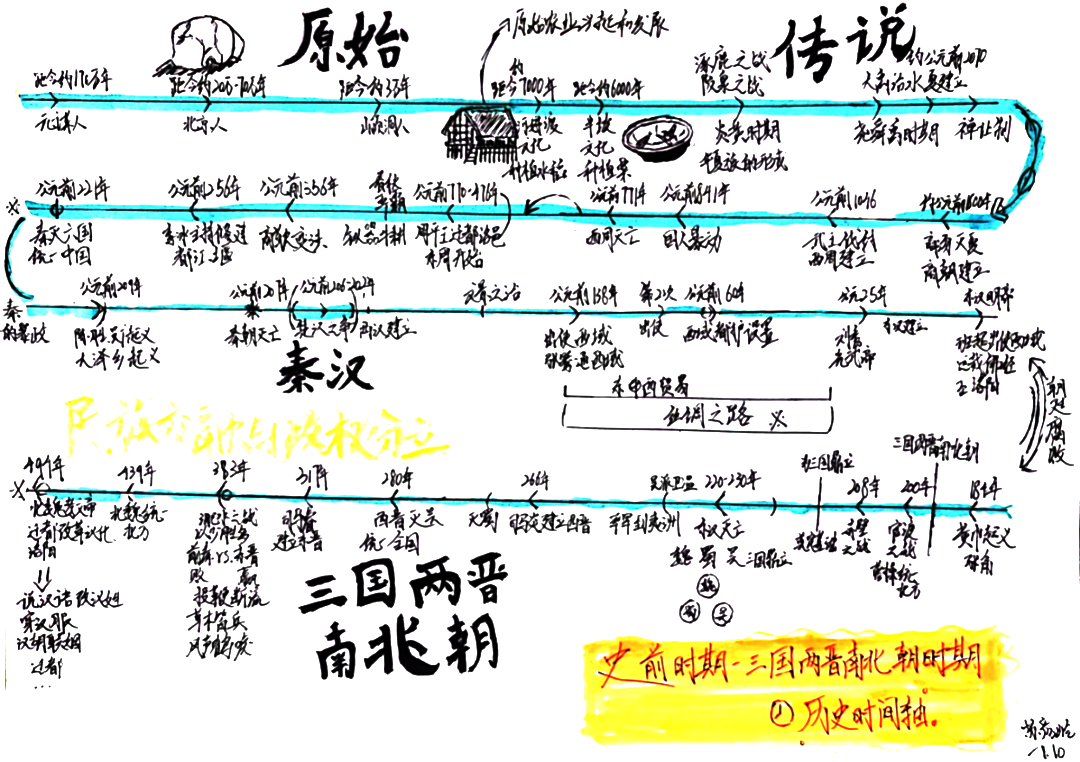 原始
传说
原始农业兴起和发展
距今约170万年
距今约
距今约3万年
约
距今7000年
距今约6000年
涿鹿之战
阪泉之战
大禹治水
夏建立
约公元前2070
元谋人
北京人
山顶洞人
河姆渡
文化
种植水稻
半坡
文化
种植粟
炎黄时期
华夏族的形成
尧舜禹时期
禅让制
公元前221年
公元前256年
公元前356年
公元前770-476年
公元前771年
公元前841年
公元前1046
秦灭六国
统一中国
李冰主持修建
都江堰
商鞅变法
周平王迁都洛邑
东周开始
西周灭亡
国人暴动
武王伐纣
西周建立
商朝建立
秦
的暴政
公元前209年
公元前207年
公元前206-202年
文景之治
公元前138年
第2次
公元前60年
公元25年
陈胜吴广起义
大泽乡起义
秦朝灭亡
楚汉之争
西汉建立
出使西域
张骞通西域
出使
西域都护设置
刘秀
光武帝
东汉建立
秦汉
东中西贸易
丝绸之路
朝廷腐败
民族交融与政权分立
494年
439年
383年
317年
280年
266年
220-230年
三国鼎立
三国两晋南北朝
208年
200年
184年
北魏孝文帝
迁都改革汉化
洛阳
说汉语 改汉姓
穿汉服
汉胡联姻
迁都
...
北魏统一
北方
淝水之战
以少胜多
前秦 vs. 东晋
败 赢
投鞭断流
草木皆兵
风声鹤唳
建立东晋
西晋灭吴
统一全国
灭蜀
司马炎建立西晋
东汉灭亡
魏 蜀 吴 三国鼎立
魏
蜀 吴
赤壁
之战
官渡
之战
曹操统一
北方
黄巾起义
张角
三国两晋
南北朝
史前时期-三国两晋南北朝时期
历史时间轴。
1.10